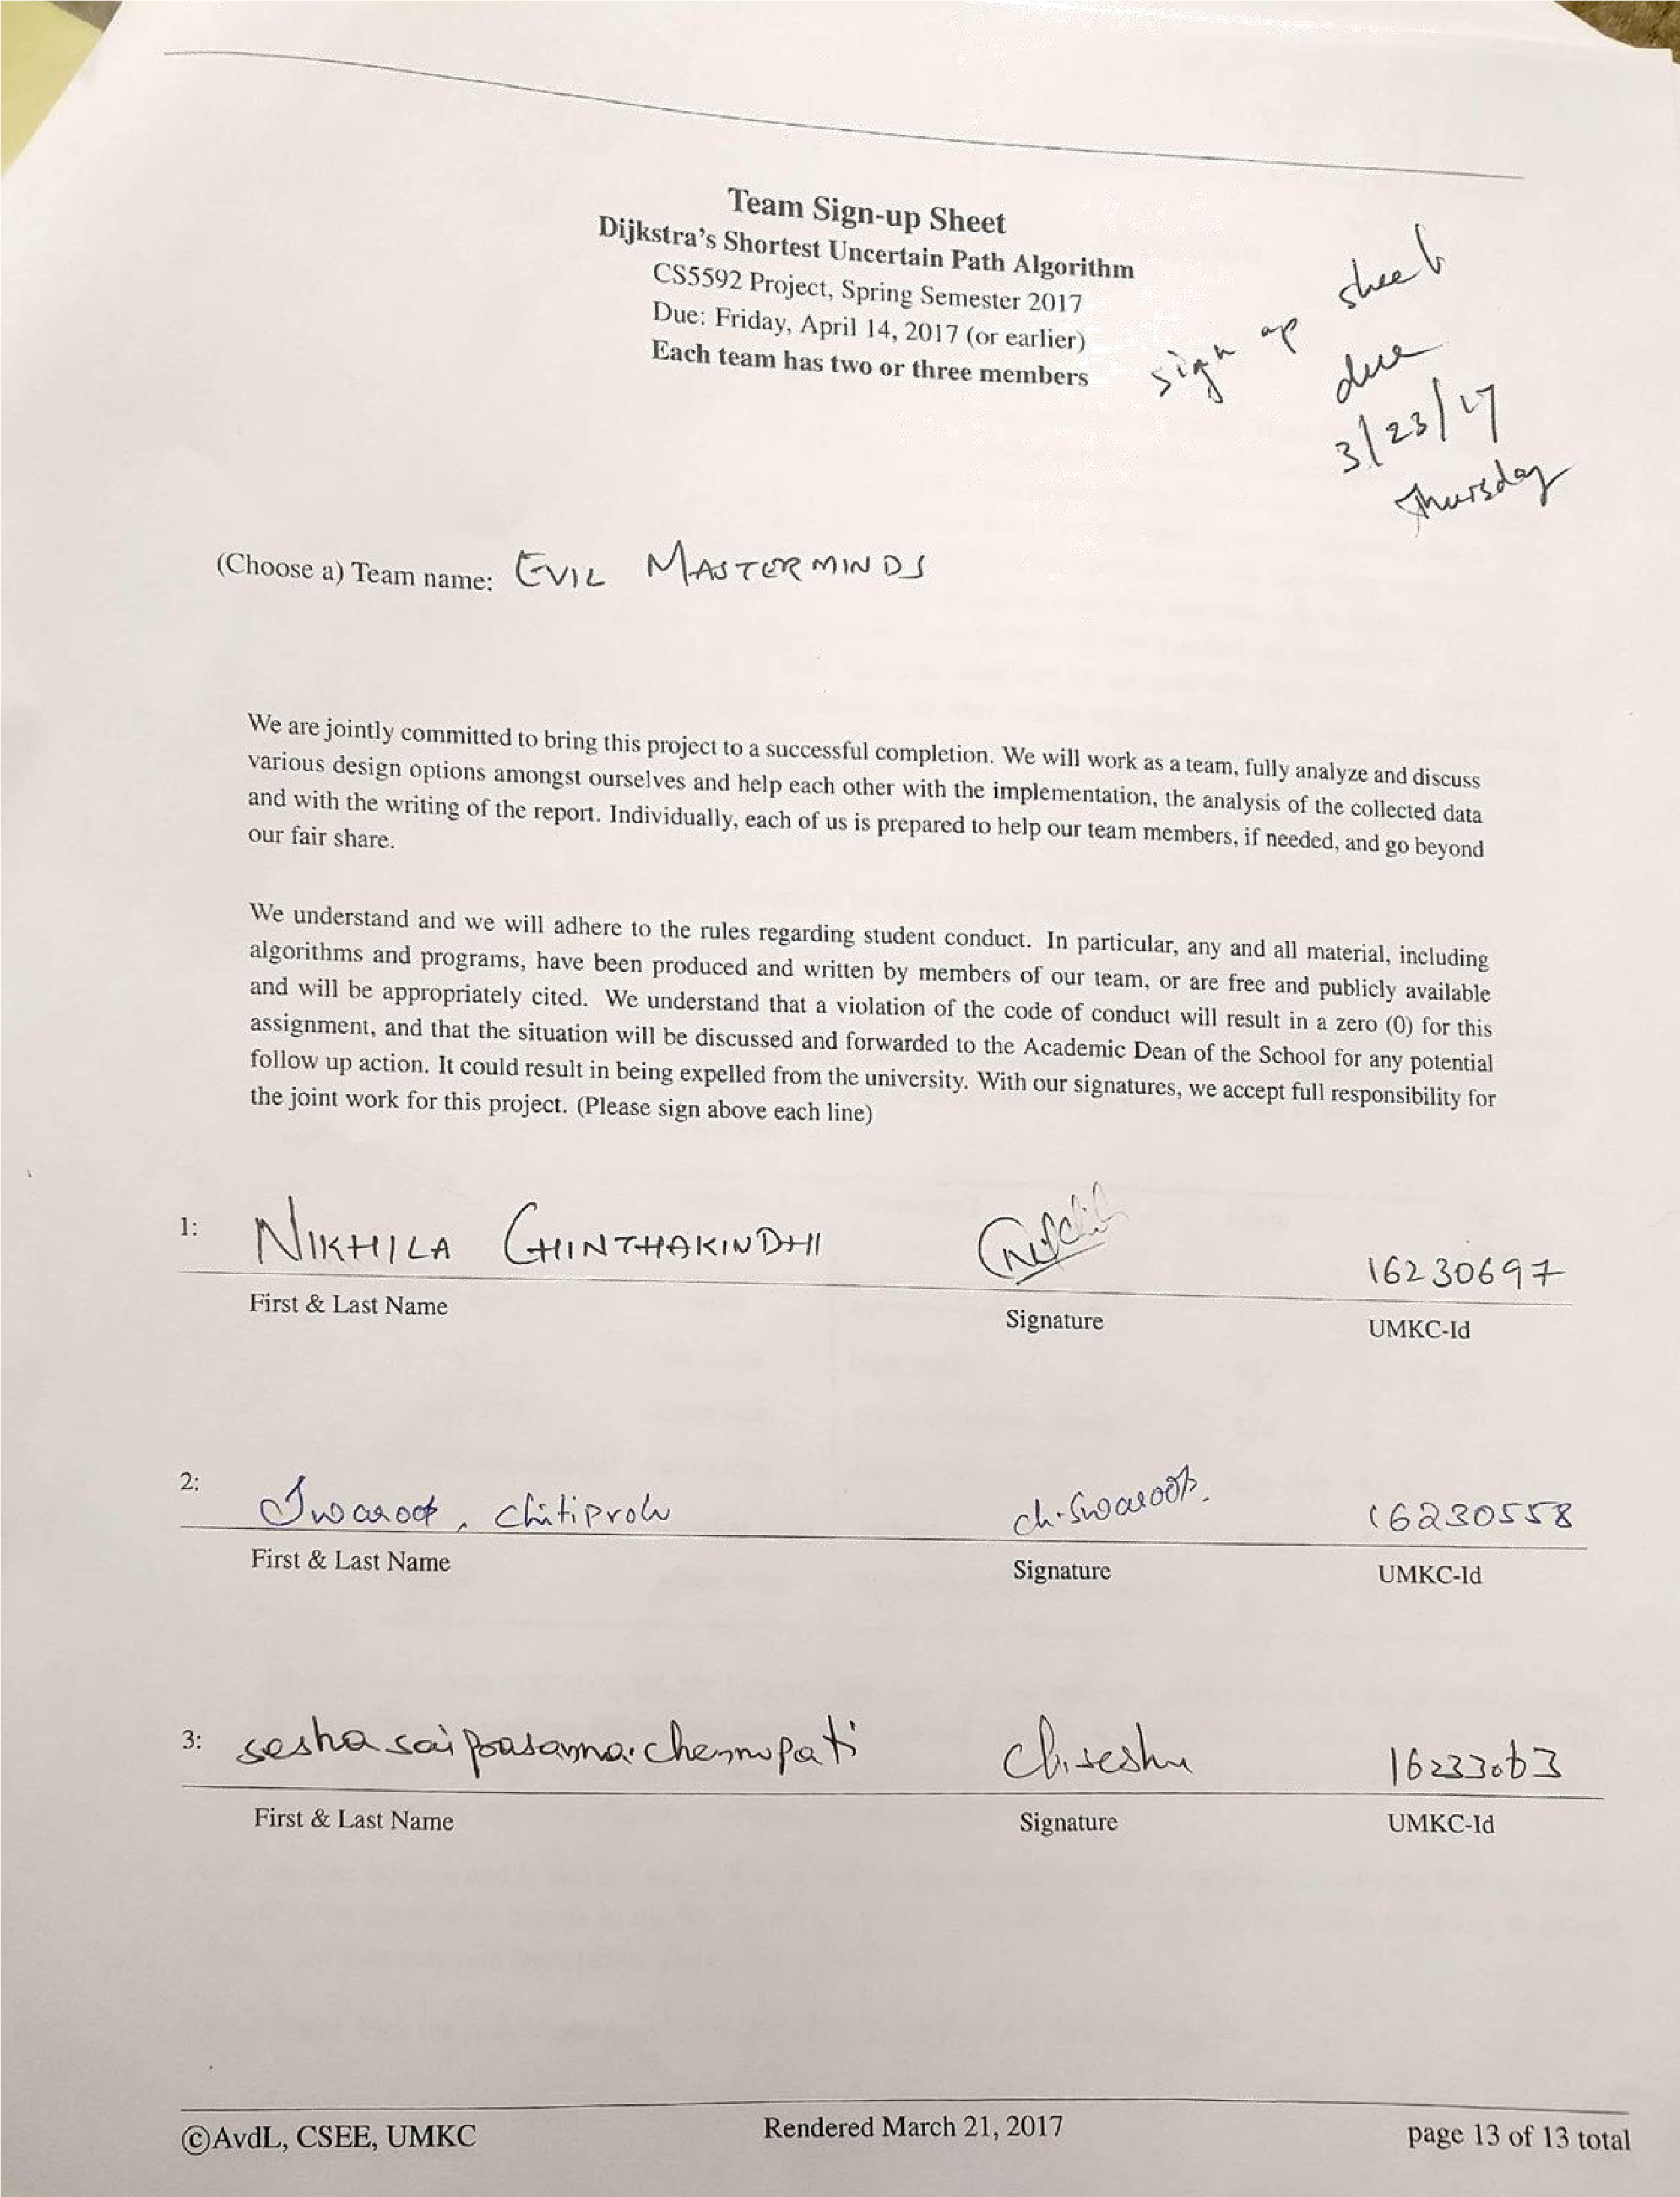 Team Sign-up Sheet
Dijkstra's Shortest Uncertain Path Algorithm
CS5592 Project, Spring Semester 2017
Due: Friday, April 14, 2017 (or earlier)
Each team has two or three members
sign up sheet
due
3/23/17
Thursday
(Choose a) Team name: EVIL MASTERMINDS
We are jointly committed to bring this project to a successful completion. We will work as a team, fully analyze and discuss
various design options amongst ourselves and help each other with the implementation, the analysis of the collected data
and with the writing of the report. Individually, each of us is prepared to help our team members, if needed, and go beyond
our fair share.
We understand and we will adhere to the rules regarding student conduct. In particular, any and all material, including
algorithms and programs, have been produced and written by members of our team, or are free and publicly available
and will be appropriately cited. We understand that a violation of the code of conduct will result in a zero (0) for this
assignment, and that the situation will be discussed and forwarded to the Academic Dean of the School for any potential
follow up action. It could result in being expelled from the university. With our signatures, we accept full responsibility for
the joint work for this project. (Please sign above each line)
1: NIKHILA CHINTHAKINDHI 16230697
First & Last Name Signature UMKC-Id
2: Swaroop, chitiprolu ch.Swaroop. 16230558
First & Last Name Signature UMKC-Id
3: sesha sai chennupati Ch.seshu
First & Last Name Signature UMKC-Id
©AvdL, CSEE, UMKC Rendered March 21, 2017 page 13 of 13 total